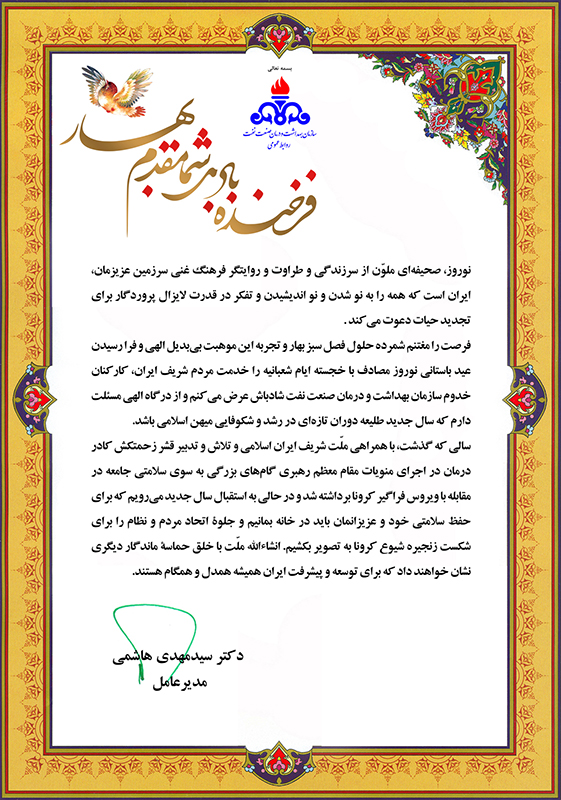 بسمه تعالی
سازمان بهداشت و درمان صنعت نفت
روابط عمومی
فرخنده باد بر شما مقدم بهار
نوروز، صحیفه‌ای ملوّن از سرزندگی و طراوت و روایتگر فرهنگ غنی سرزمین عزیزمان،
ایران است که همه را به نو شدن و نو اندیشیدن و تفکر در قدرت لایزال پروردگار برای
تجدید حیات دعوت می‌کند.
فرصت را مغتنم شمرده حلول فصل سبز بهار و تجربه این موهبت بی‌بدیل الهی و فرا رسیدن
عید باستانی نوروز مصادف با خجسته ایام شعبانیه را خدمت مردم شریف ایران، کارکنان
خدوم سازمان بهداشت و درمان صنعت نفت شادباش عرض می‌کنم و از درگاه الهی مسئلت
دارم که سال جدید طلیعه دوران تازه‌ای در رشد و شکوفایی میهن اسلامی باشد.
سالی که گذشت، با همراهی ملّت شریف ایران اسلامی و تلاش و تدبیر قشر زحمتکش کادر
درمان در اجرای منویات مقام معظم رهبری گام‌های بزرگی به سوی سلامتی جامعه در
مقابله با ویروس فراگیر کرونا برداشته شد و در حالی به استقبال سال جدید می‌رویم که برای
حفظ سلامتی خود و عزیزانمان باید در خانه بمانیم و جلوۀ اتحاد مردم و نظام را برای
شکست زنجیره شیوع کرونا به تصویر بکشیم. انشاءالله ملّت با خلق حماسۀ ماندگار دیگری
نشان خواهند داد که برای توسعه و پیشرفت ایران همیشه همدل و همگام هستند.
دکتر سیدمهدی هاشمی
مدیرعامل